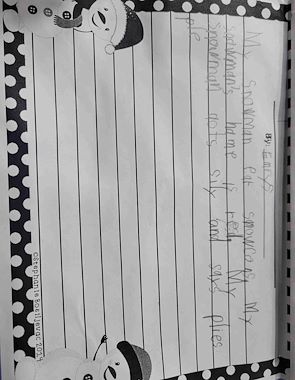 By: Emery
My snowman eat snowcons My
snowman's name is redj My
snowman gots sily and says plies
ple
©Stephanie Soelijevac 2021